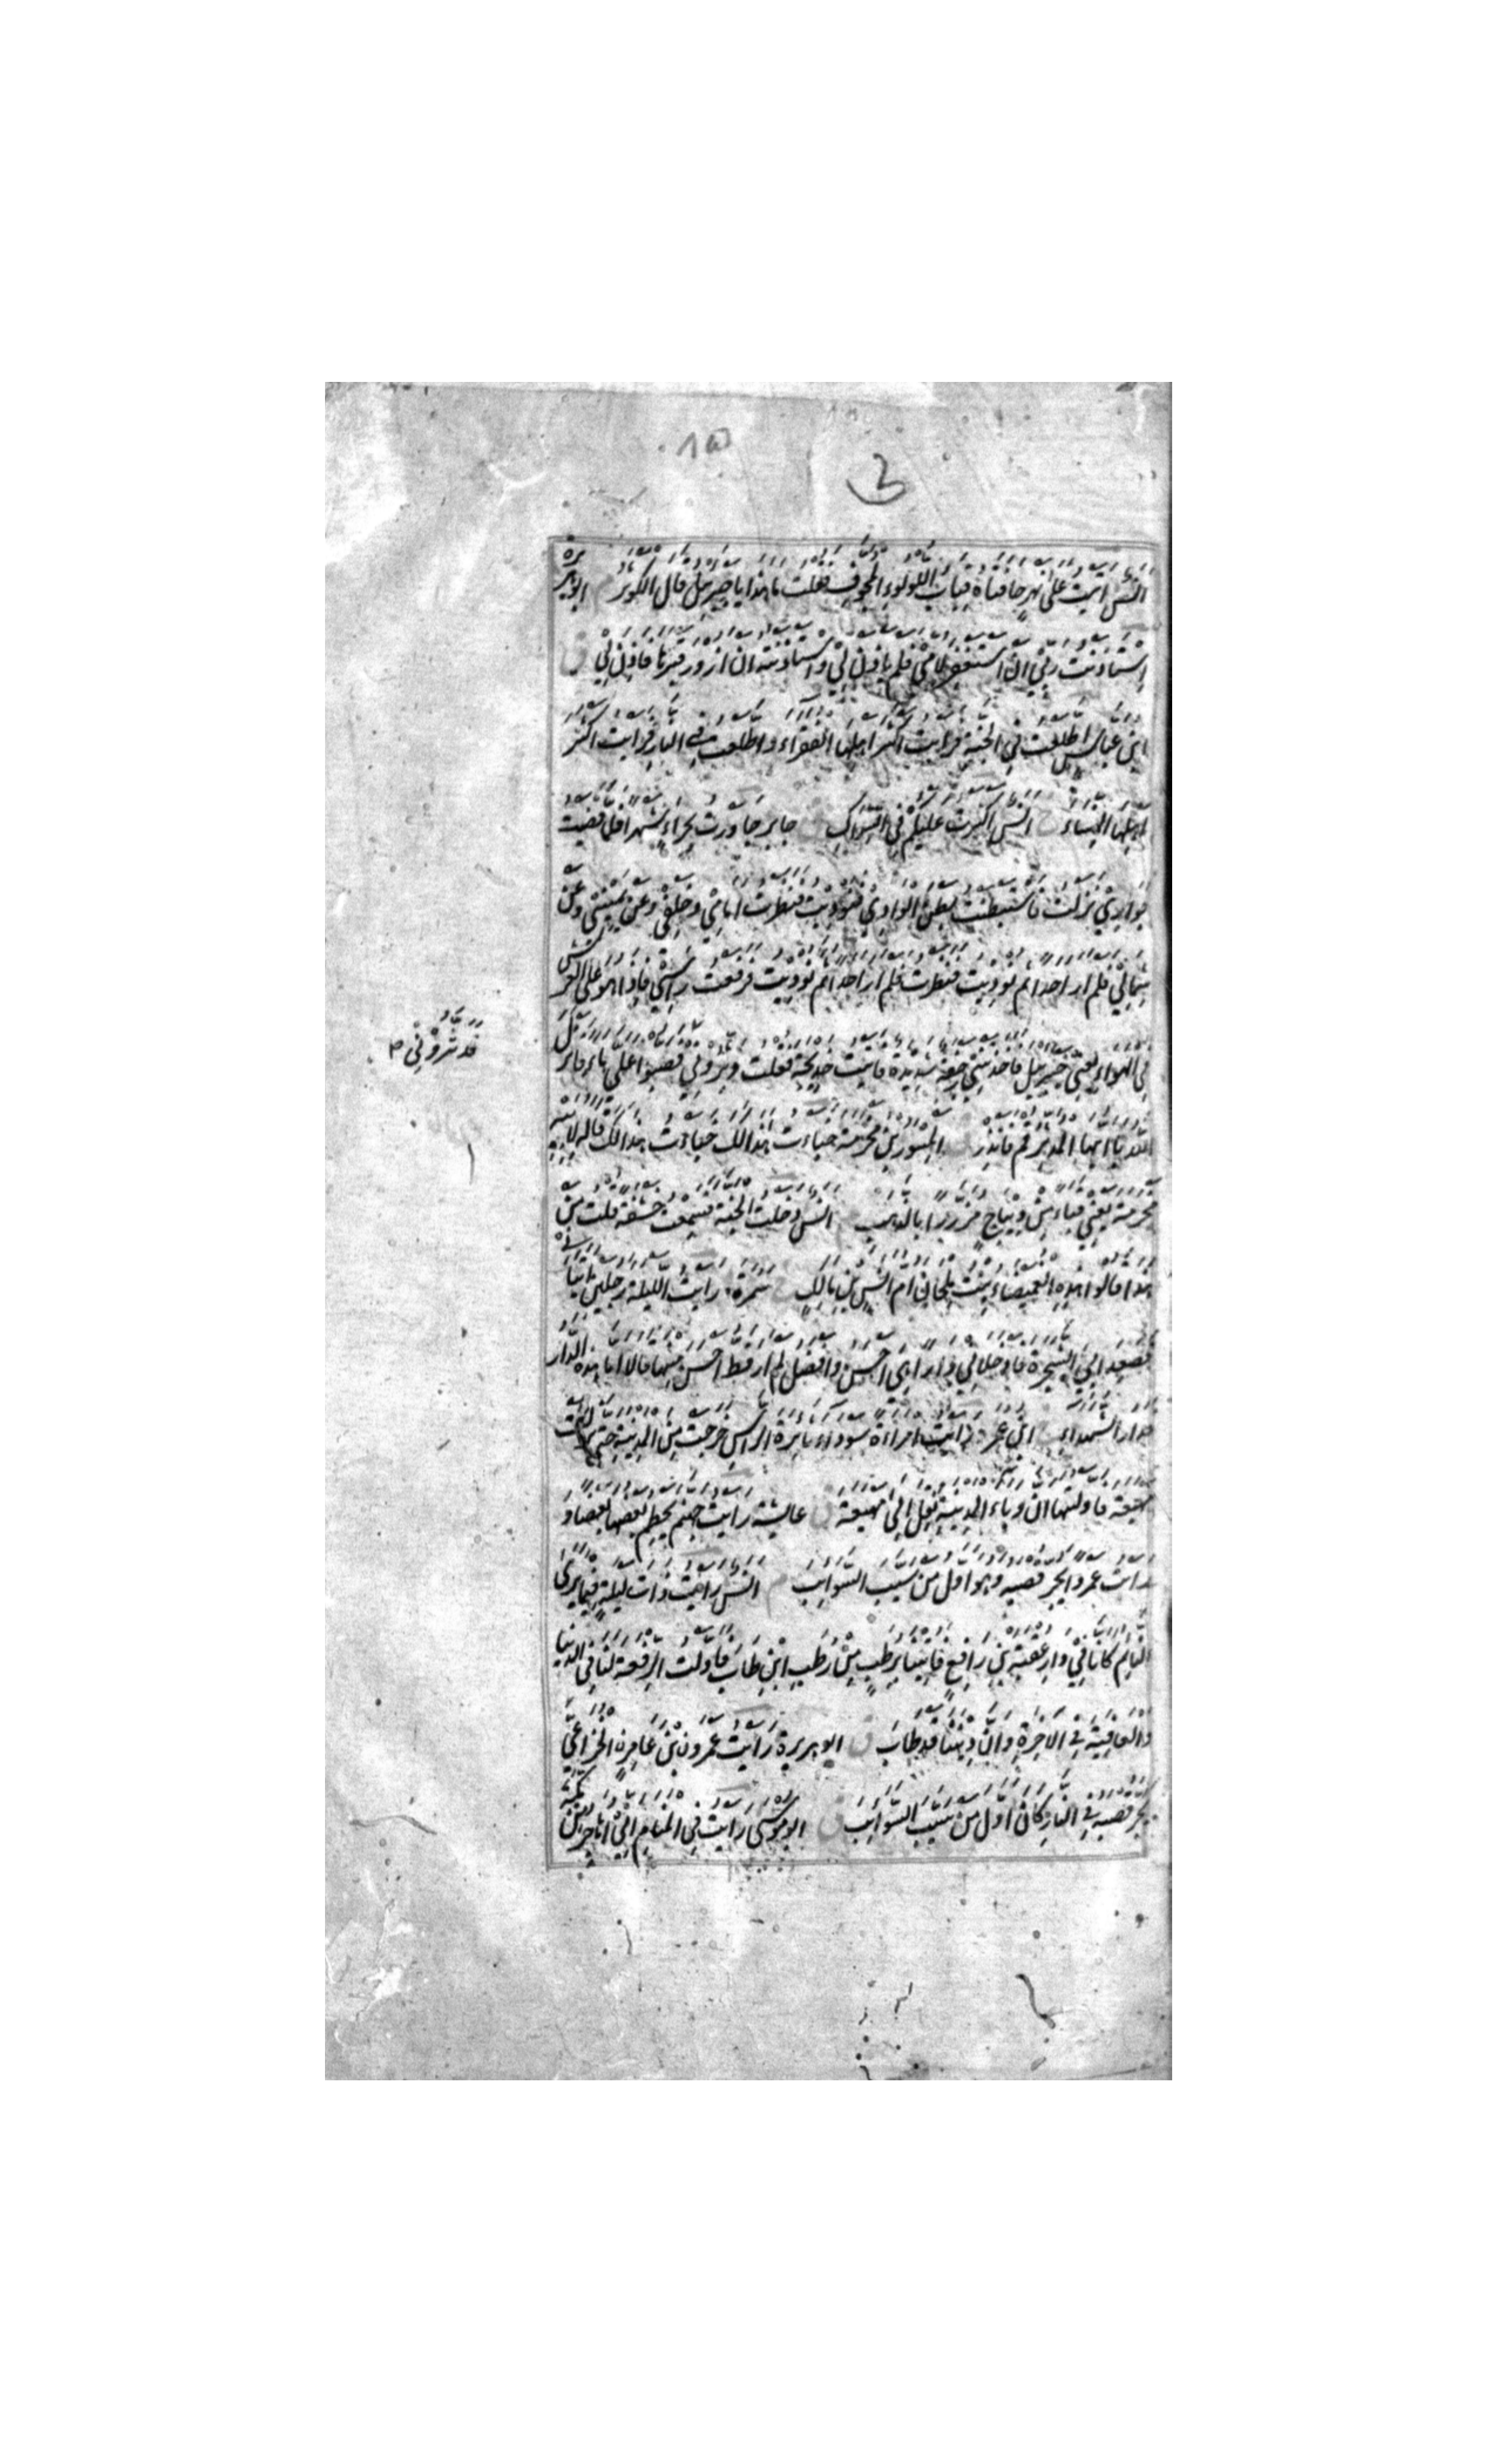 انس اتيت على نهر حافتاه قباب اللولوء المجوف فقلت ما هذا يا جبريل قال الكوثر م ابو هريرة
استاذنت ربي ان استغفر لامي فلم ياذن لي واستاذنته ان ازور قبرها فاذن لي ق
ابن عباس اطلعت في الجنة فرايت اكثر اهلها الفقراء واطلعت في النار فرايت اكثر
اهلها النساء خ انس اكثرت عليكم في السواك ق جابر جاورت بحراء شهرا فلما قضيت
جواري نزلت فاستبطنت بطن الوادي فنوديت فنظرت امامي وخلفي وعن يميني وعن
شمالي فلم ار احدا ثم نوديت فنظرت فلم ار احدا ثم نوديت فرفعت راسي فاذا هو على العرش
في الهواء يعني جبريل فاخذتني رجفة شديدة فاتيت خديجة فقلت دثروني فصبوا علي ماء فانزل
الله يا ايها المدثر قم فانذر ق المسور بن مخرمة خبات هذا لك خبات هذا لك قاله لابيه
مخرمة يعني قباء من ديباج مزررا بالذهب م انس دخلت الجنة فسمعت خشفة قلت من
هذا قالوا هذه الغميصاء بنت ملحان ام انس بن مالك خ سمرة رايت الليلة رجلين اتياني
فصعدا بي الشجرة فادخلاني دارا هي احسن وافضل لم ار قط احسن منها قالا اما هذه الدار
فدار الشهداء خ ابن عمر رايت امراة سوداء ثايرة الراس خرجت من المدينة حتى نزلت
مهيعة فاولتها ان وباء المدينة نقل الى مهيعة ق عايشة رايت جهنم يحطم بعضها بعضا و
رايت عمروا يجر قصبه وهو اول من سيب السوايب م انس رايت ذات ليلة فيما يرى
النايم كانا في دار عقبة بن رافع فاتينا برطب من رطب ابن طاب فاولت الرفعة لنا في الدنيا
والعاقبة في الاخرة وان ديننا قد طاب ق ابو هريرة رايت عمرو بن عامر الخزاعي
يجر قصبه في النار كان اول من سيب السوايب ق ابو موسى رايت في المنام اني اهاجر من مكة
فدثروني ص